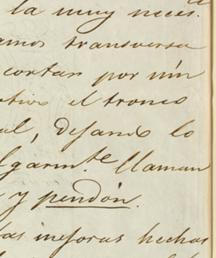 la muy neces.
amos transversa
cortar por nin
otivo el tronco
al, dejando lo
lgarm.te llaman
y pendón.
las mejoras hechas